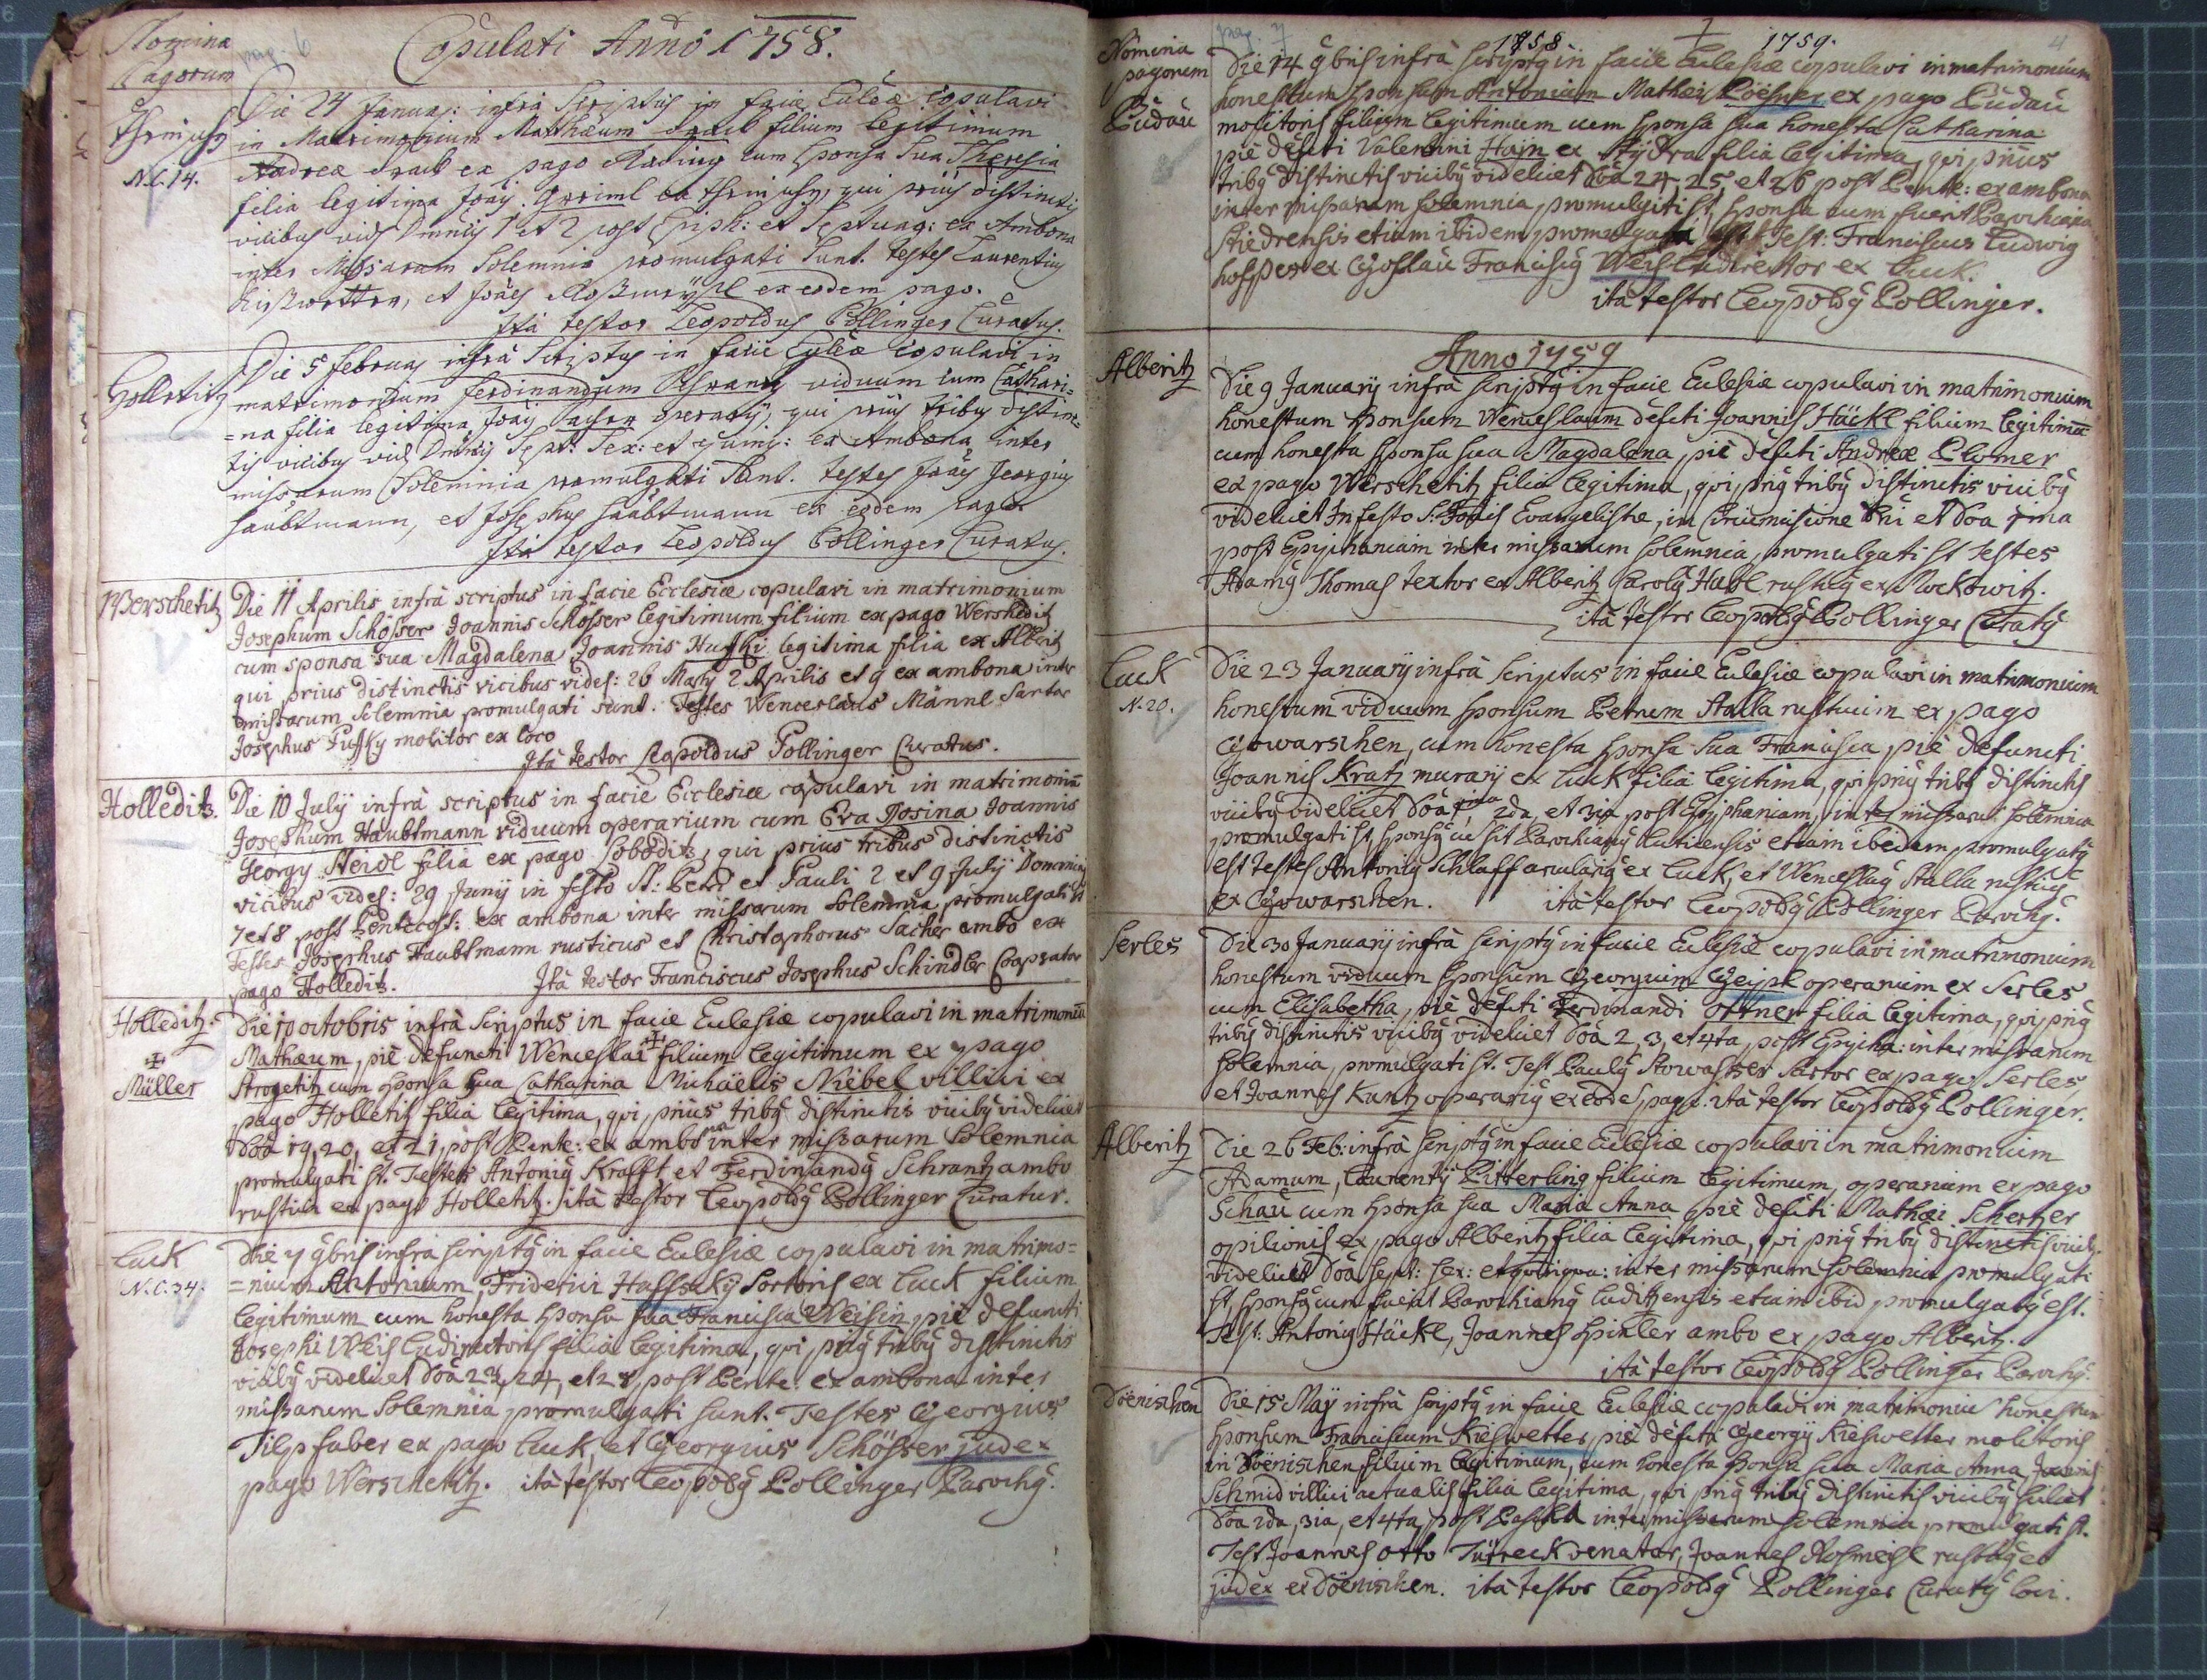 Nomina
Pagorum
pag. 6
Copulati Anno 1758.
Die 24 Januar: infra Scriptus in facie Eccleae copulavi
in Matrimonium Matthaeum filium legitimum
N.C. 14.
Andreae ex pago cum sponsa sua Theresia
filia legitima Joäis ex qui prius distinctis
vicibus videl Dnicis 1 et 2 post Epiph: et Septuag: ex Ambona
inter Missarum Solemnia promulgati sunt. Testes Laurentius
et Joäes ex eodem pago.
Ita testor Leopoldus Pollinger Curatus.
Holletitz
Die 5 februar infra Scriptus in facie Eccleae copulavi in
matrimonium Ferdinandum Schrantz viduum cum Cathari-
=na filia legitima Joäis operarÿ, qui prius tribus distinc=
tis vicibus videl Dnicis Sept: Sex: et Quinq: ex Ambona inter
missarum Solemnia promulgati sunt. Testes Joäes Georgius
Haubtmann, et Josephus Haubtmann ex eodem pago
Ita testor Leopoldus Pollinger Curatus.
Werschetitz
Die 11 Aprilis infrà scriptus in facie Ecclesiae copulavi in matrimonium
Josephum Schösser Joannis Schösser legitimum filium ex pago Wershedit
cum sponsa sua Magdalena Joannis legitima filia ex Alberitz
qui prius distinctis vicibus videl: 26 Marty 2 Aprilis et 9 ex ambona inter
missarum Solemnia promulgati sunt. Testes Wenceslaus Männl Sartor
Josephus molitor ex loco
Ità testor Leopoldus Pollinger Curatus.
Holleditz.
Die 10 Julÿ infrà scriptus in facie Ecclesiae copulavi in matrimoniū
Josephum Haubtmann viduum operarium cum Eva Rosina Joannis
Georgy Steidl filia ex pago Soboditz, qui prius tribus distinctis
vicibus videl: 29 Junÿ in festo SS: Petri et Pauli 2 et 9 Julÿ Dominicis
7 et 8 post Pentecost: ex ambona inter missarum Solemnia promulgati st
Testes Josephus Haubtmann rusticus et Christophorus Sacher ambo ex
pago Holleditz.
Ità testor Franciscus Josephus Schindler Cooperator
Holleditz.
Müller
Die 10 octobris infrà Scriptus in facie Eulesiae copulavi in matrimoniū
Mathaeum, piè defuncti Wenceslai filium legitimum ex pago
Strogetitz cum sponsa sua Catharina Michäelis Niebel villici ex
pago Holletitz filia legitima, qoi, prius tribq distinctis vicibq videlicet
Doa 19, 20, et 21, post Pente: ex ambona inter missarum Solemnia
promulgati st. Testes Antonig Krafft et Ferdinandq Schrantz ambo
rustici ex pago Holletitz. ità testor Leopoldq Pollinger Curatus.
Luck
N.C. 34.
Die 7 9bris infra scriptq in facie Eulesiae copulavi in matrimo=
=nium Antonium, Friderici Hafsseky Sartoris ex Luck filium
legitimum cum honesta sponsa sua Francisca Weisin, piè defuncti
Josephi Weis ludirectoris filia legitima, qoi, priq tribq distinctis
vicibq videlicet Doa 23, 24, et 25, post Pente: ex ambona inter
missarum Solemnia promulgati sunt. Testes Georgius
Tilp faber ex pago Luck, et Georgius Schösser judex
pago Werschetitz. ità testor Leopoldq Pollinger Parochq.
Nomina
pagorum
pag. 7
1758.
1759.
4
Ludau
Die 14 9bris infrà scriptq in facie Eulesiae copulavi in matrimonium
honestum sponsum Antonium Mathaei ex pago Ludau
molitoris filium legitimum cum sponsa sua honesta Catharina
piè defuncti Valentini Hajn ex Stÿdra filia legitima, qoi prius
tribq distinctis vicibq videlicet Doa 24, 25, et 26 post Pente: ex ambona
inter missarum solemnia, promulgati st, sponsa cum fuerit Parochiana
Stiedrensis etiam ibidem promulgata est Test: Franciscus Ludwig
ex Goslau Franciscq Weis Ludirector ex Luck.
ita testor Leopoldq Pollinger.
Anno 1759
Alberitz
Die 9 Januarÿ infrà scriptq in facie Eulesiae copulavi in matrimonium
honestum sponsum Wenceslaum defcti Joannis Häckl filium legitimū
cum honesta sponsa sua Magdalena, piè defcti Andreae Plomer
ex pago Werschetitz filia legitima, qoi, priq tribq distinctis vicibq
videlicet In festo S: Joäis Evangelistae, in Circumcisione Dni et Doa 1ma
post Epiphaniam inter missarum solemnia, promulgati st testes
Adamq Thomas textor ex Alberitz Carolq Habl rusticq ex Nockowitz.
ità testor Leopoldq Pollinger Curatq
Luck
N. 20.
Die 23 Januarÿ infrà Scriptus in facie Eulesiae copulavi in matrimonium
honestum viduum sponsum Petrum Stalla rusticum ex pago
Gowarschen, cum honesta sponsa sua Francisca, piè defuncti
Joannis Kratz murarÿ ex Luck filia legitima, qoi priq tribq distinctis
vicibq videlicet Doa 1ma, 2da, et 3ia post Epiphaniam, inter missarū solemnia
promulgati st, sponsq cū sit Parochianq Luticensis etiam ibidem promulgatq
est testes Antonig Schlaff arculariq ex Luck, et Wenceslaq Stalla rusticq
ex Gowarschen. ità testor Leopoldq Pollinger Parochq.
Serles
Die 30 Januarÿ infrà scriptq in facie Eulesiae copulavi in matrimonium
honestum viduum sponsum Georgium Geipl operarium ex Serles
cum Elisabetha, piè defcti Ferdinandi Ottner filia legitima, qoi, priq
tribq distinctis vicibq videlicet Doa 2, 3, et 4ta, post Epipha: inter missarum
solemnia, promulgati st. Test Paulq Stowasser Sartor ex pago Serles,
et Joannes Kuntz operarig ex eode pago. ità testor Leopoldq Pollinger.
Alberitz
Die 26 Feb: infrà scriptq in facie Eulesiae copulavi in matrimonium
Adamum, Laurentÿ Pitterling filium legitimum, operarium ex pago
Schau cum sponsa sua Maria Anna, piè defcti Mathaei Schertzer
opilionis ex pago Alberitz filia legitima, qoi priq tribq distinctis vicib.
videlicet Doa sept: sex: et quinqua: inter missarum solemnia promulgati
st, sponsq cum fuerat Parochianq Luditzensis etiam ibid promulgatq est.
Test. Antonig Häckl, Joannes Spinler ambo ex pago Alberitz.
ità testor Leopoldq Pollinger Parochq.
Doënischen
Die 15 Maÿ infrà scriptq in facie Eulesiae copulavi in matrimoniū honestum
sponsum Franciscum Kieswetter, piè defcti Georgÿ Kieswetter molitoris
in Doënischen filium legitimum, cum honesta sponsa sua Maria Anna, Joannis
Schmid villici actualis filia legitima, qoi priq tribq distinctis vicibq scilicet
Doa 2da, 3ia, et 4ta, post Pascha inter missarum solemnia promulgati st.
Test Joannes Otto Türreck venator, Joannes Rosmeisl rusticq et
judex ex Doënischen. ità testor Leopoldq Pollinger Curatq loci.